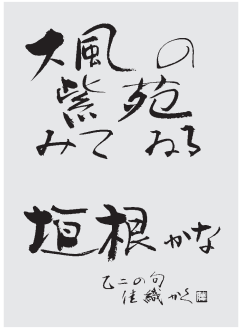 大風の
紫苑
みてゐる
垣根かな
乙二の句
佳織かく